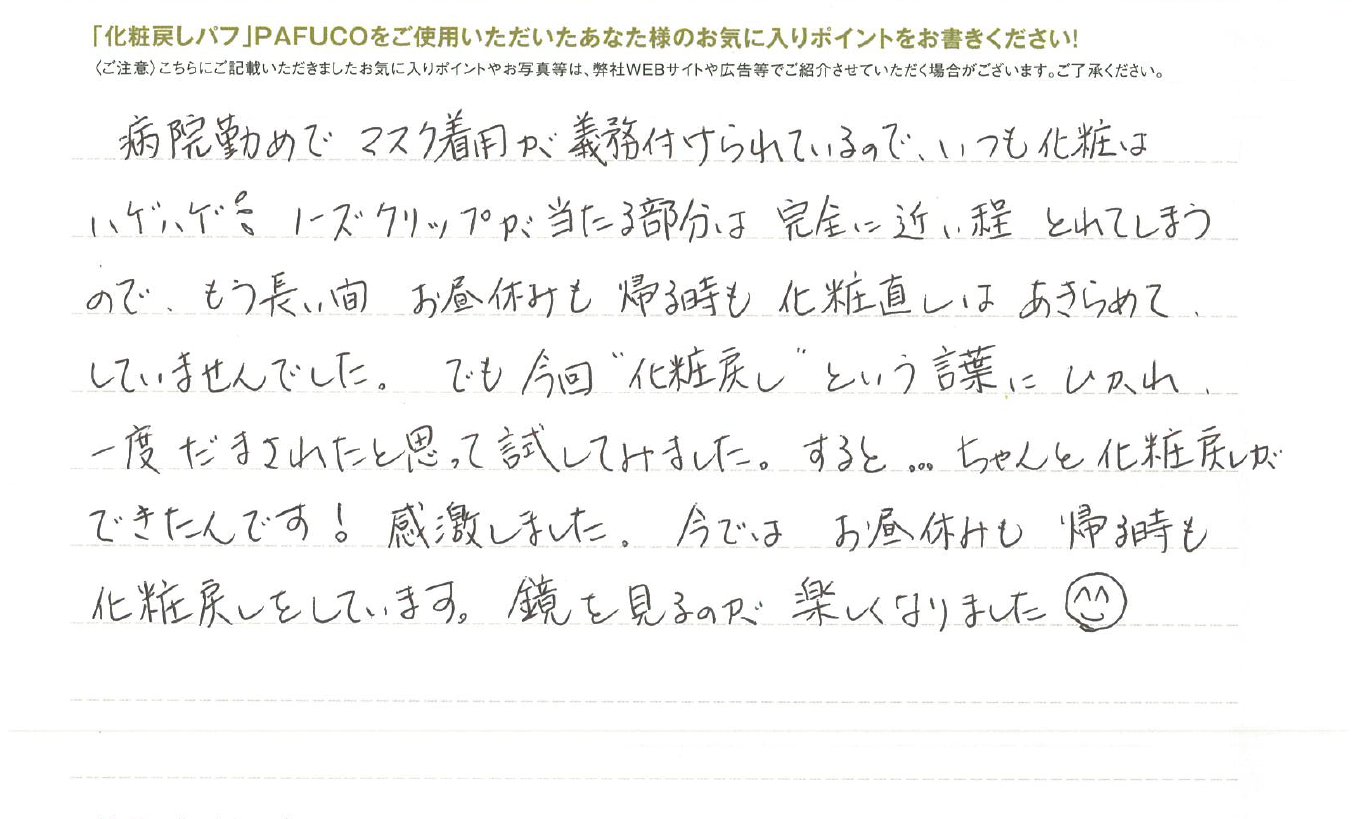 「化粧戻しパフ」PAFUCOをご使用いただいたあなた様のお気に入りポイントをお書きください!
〈ご注意〉こちらにご記載いただきましたお気に入りポイントやお写真等は、弊社WEBサイトや広告等でご紹介させていただく場合がございます。ご了承ください。
病院勤めで マスク着用が 義務付けられているので、いつも化粧は
ハゲハゲ ノーズクリップが 当たる部分は 完全に近い程 とれてしまう
ので、もう長い間 お昼休みも 帰る時も 化粧直しは あきらめて、
していませんでした。 でも 今回 "化粧戻し" という言葉に ひかれ、
一度 だまされたと思って 試してみました。 すると … ちゃんと 化粧戻しが
できたんです! 感激しました。 今では お昼休みも 帰る時も
化粧戻しをしています。 鏡を 見るのが 楽しくなりました